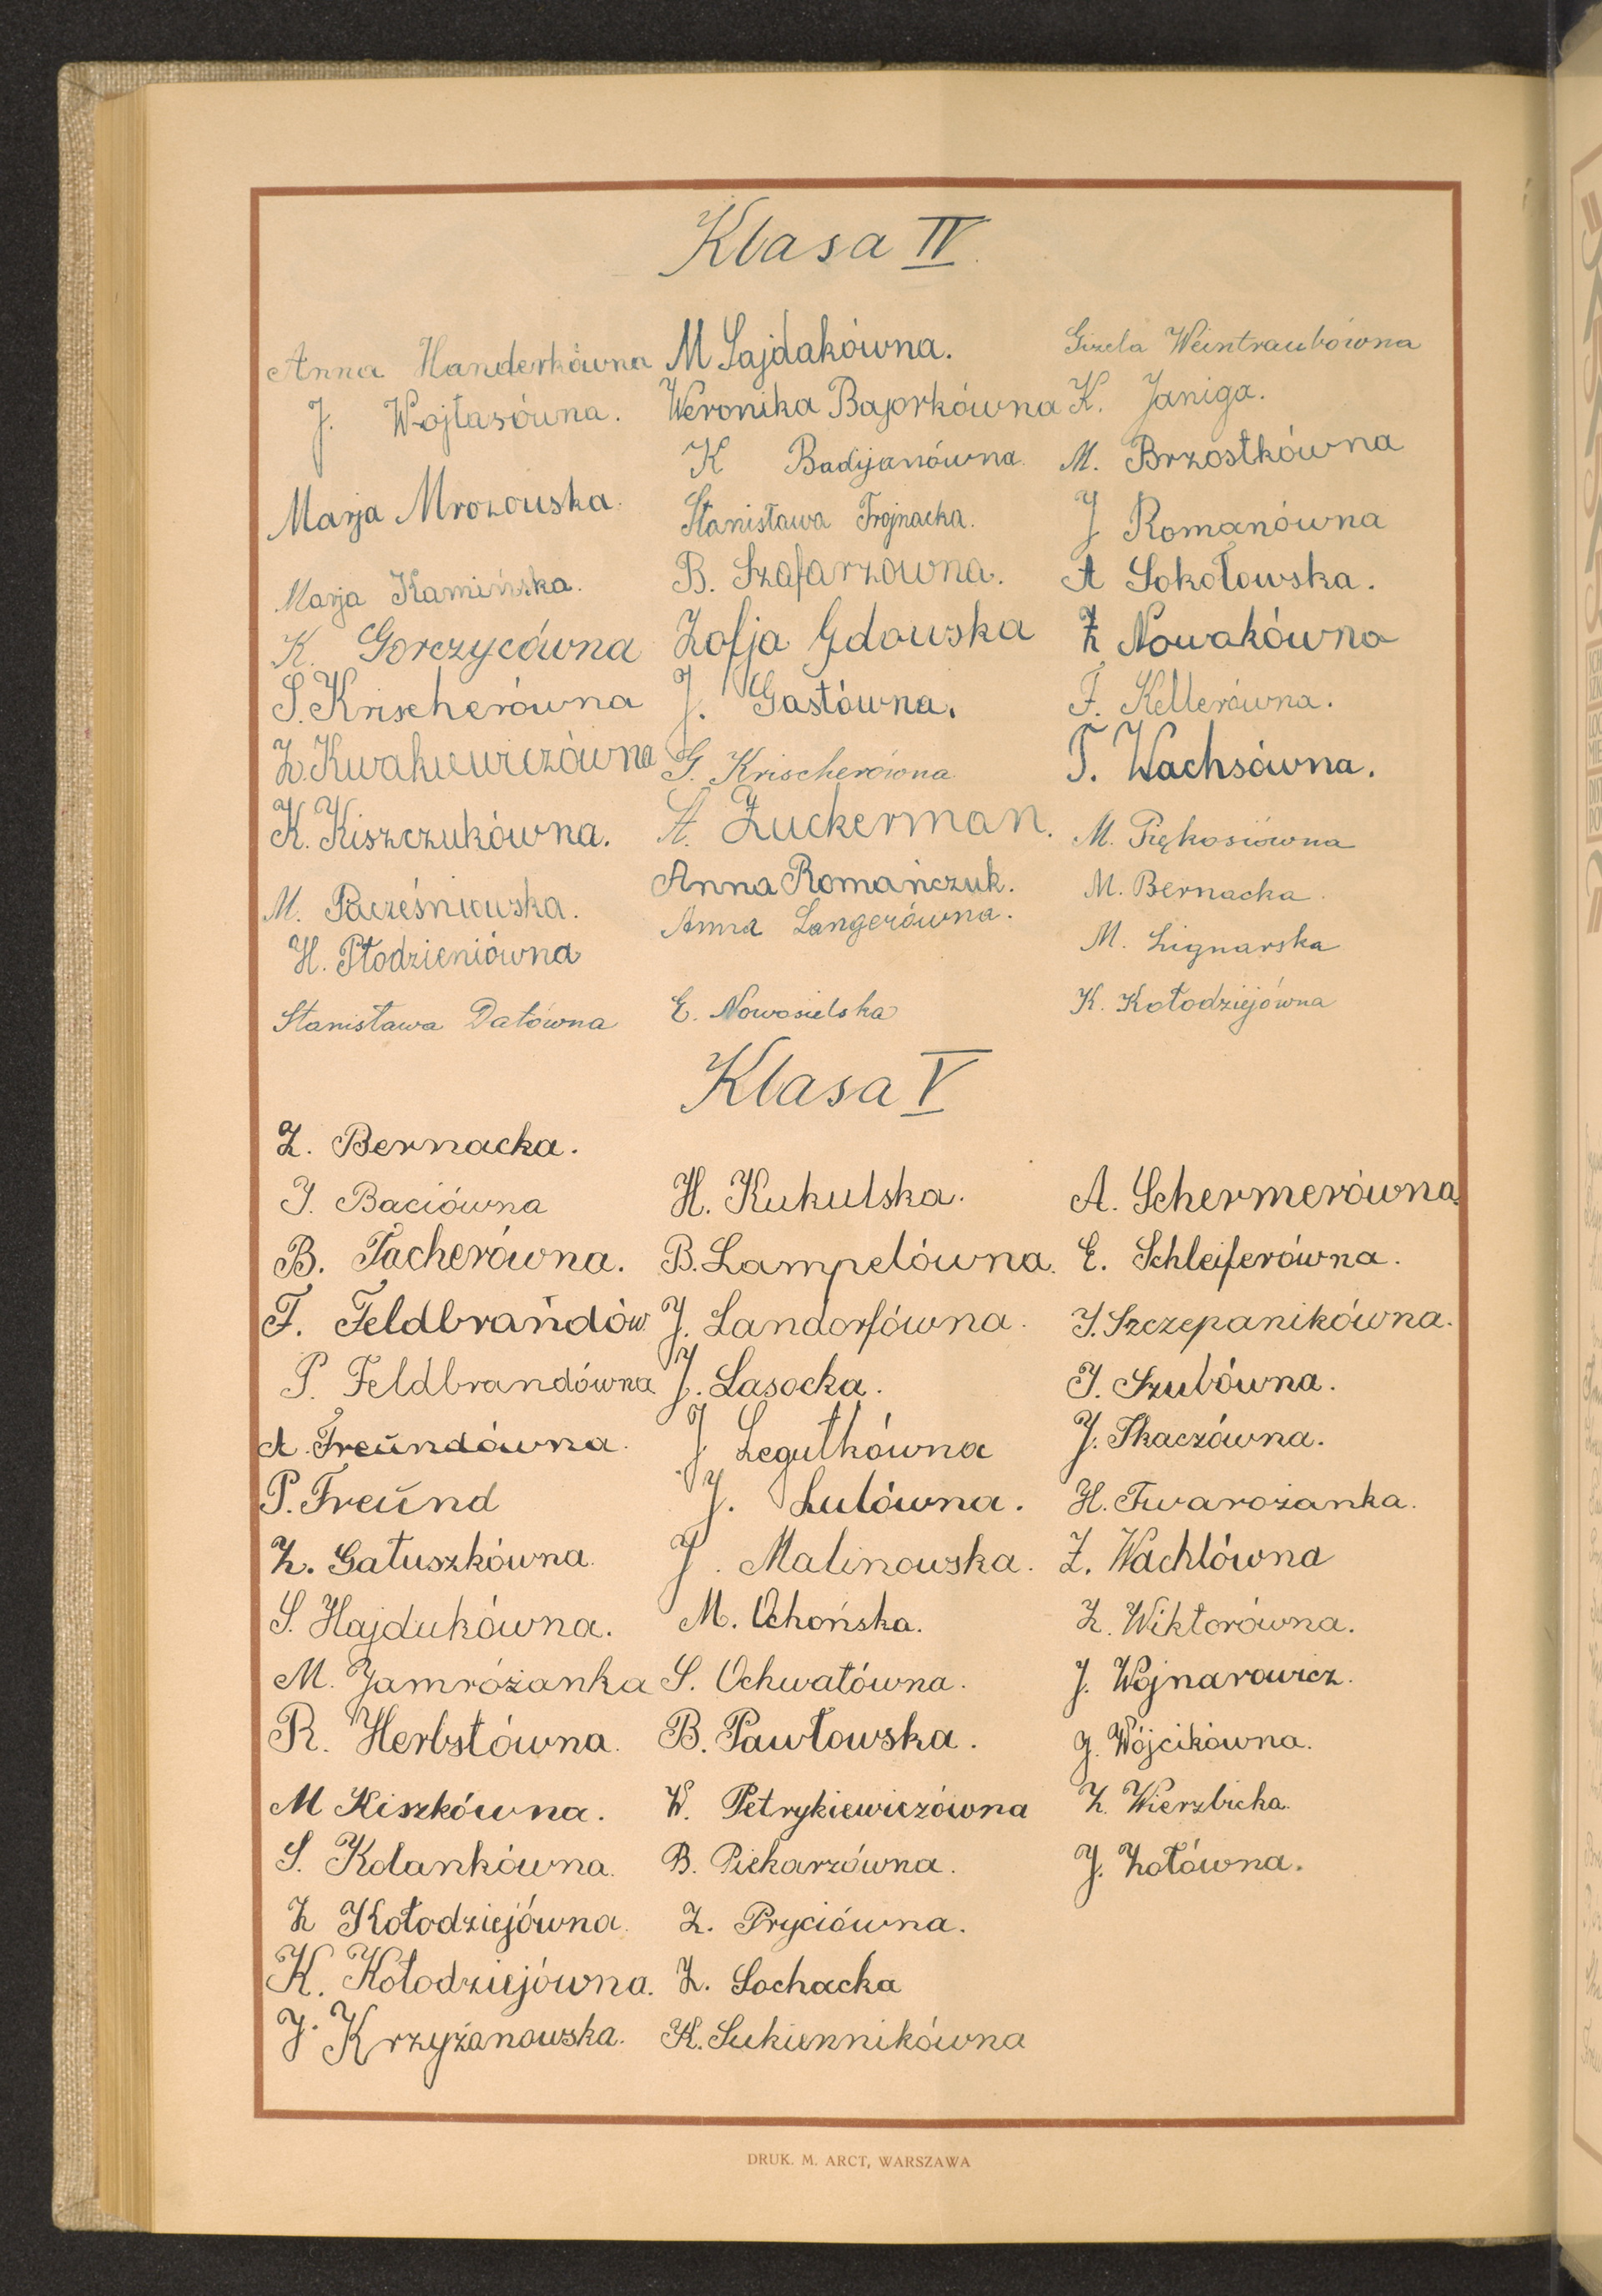 Klasa IV.
Anna Handerkówna
J. Wojtasówna.
Marja Mrozowska.
Marja Kamińska.
K. Gorczycówna
S. Krischerówna
Z. Kwakiewiczówna
K. Kiszczukówna.
M. Pacześniowska.
H. Płodzieniówna
Stanisława Datówna
M Sajdakówna.
Weronika Bajorkówna
K Badijanówna.
Stanisława Trojnacka.
B. Szafarzówna.
Zofja Gdowska
J. Gastówna.
G. Krischerówna
A. Zuckerman.
Anna Romańczuk.
Anna Langerówna.
E. Nowosielska
Gizela Weintraubówna
K. Janiga.
M. Brzostkówna
J Romanówna
A Sokołowska.
Z Nowakówna
F. Kellerówna.
T. Wachsówna.
M. Piękosiówna
M. Bernacka.
M. Lignarska
K. Kołodziejówna
Klasa V
Z. Bernacka.
J. Baciówna
B. Facherówna.
F. Feldbrandów
P. Feldbrandówna
A. Freundówna.
P. Freund
Z. Gałuszkówna.
S. Hajdukówna.
M. Jamrożanka
R. Herbstówna.
M Kiszkówna.
S. Kolankówna.
Z Kołodziejówna.
K. Kołodziejówna.
J. Krzyżanowska.
H. Kukulska.
B. Lampelówna.
J. Landorfówna.
J. Lasocka.
J Legutkówna
J. Lulówna.
J. Malinowska.
M. Ochońska.
S. Ochwatówna.
B. Pawłowska.
W. Petrykiewiczówna
B. Piekarzówna.
Z. Pryciówna.
Z. Sochacka
K. Sukiennikówna
A. Schermerówna.
E. Schleiferówna.
J. Szczepanikówna.
J. Szubówna.
J. Tkaczówna.
H. Twarożanka.
Z. Wachlówna
Z. Wiktorówna.
J. Wojnarowicz.
J. Wójcikówna.
Z. Wierzbicka.
J. Zołówna.
DRUK. M. ARCT, WARSZAWA